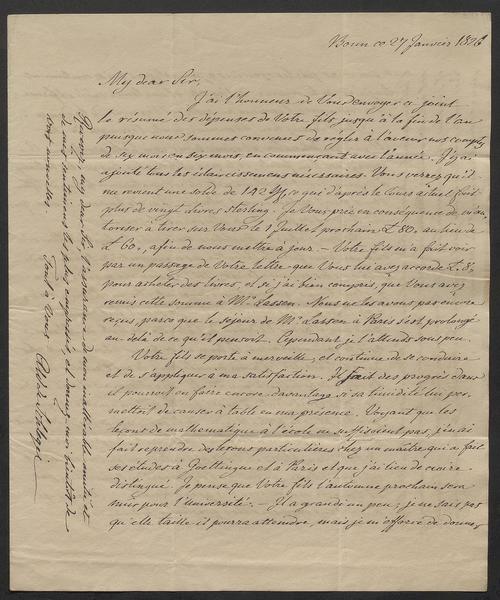 Bonn ce 27 Janvier 1826
My dear Sir,
J'ai l'honneur de Vous envoyer ci joint
le résumé des dépenses de Votre fils jusqu'à la fin de l'an
puisque nous sommes convenus de régler à l'avenir nos comptes
de six mois en six mois, en commençant avec l'année. J'y ai
ajouté tous les éclaircissemens nécessaires. Vous verrez qu'il
me revient une solde de 142 ce qui d'après le cours actuel fait
plus de vingt livres sterling. Je Vous prie en conséquence de m'au-
toriser à tirer sur Vous le 1 Juillet prochain £ 80. au lieu de
£ 60., afin de nous mettre à jour. – Votre fils m'a fait voir
par un passage de Votre lettre que Vous lui avez accordé £. 8.
pour acheter des livres, et si j'ai bien compris, que Vous avez
remis cette somme à Mr. Lassen. Nous ne les avons pas encore
reçus, parce que le séjour de Mr. Lassen à Paris s'est prolongé
au delà de ce qu'il pensoit. Cependant je l'attends sous peu.
Votre fils se porte à merveille, et continue de se conduire
et de s'appliquer à ma satisfaction. Il fait des progrès dans
il pourroit en faire encore davantage si sa timidité lui per-
mettoit de causer à table en ma présence. Voyant que les
leçons de mathématique à l'école ne suffisoient pas, je lui ai
fait reprendre des leçons particulières chez un maître qui a fait
ses études à Goettingue et à Paris et que j'ai lieu de croire
distingué. Je pense que Votre fils l'automne prochain sera
mûr pour l'université. – Il a grandi un peu, je ne sais pas
qu'elle taille il pourra attendre, mais je m'efforce de donner
Recevez, my dear Sir, l'assurance de mon inaltérable amitié et
de mes sentimens les plus empressés, et donnez moi bientôt de
vos nouvelles.
Tout à Vous